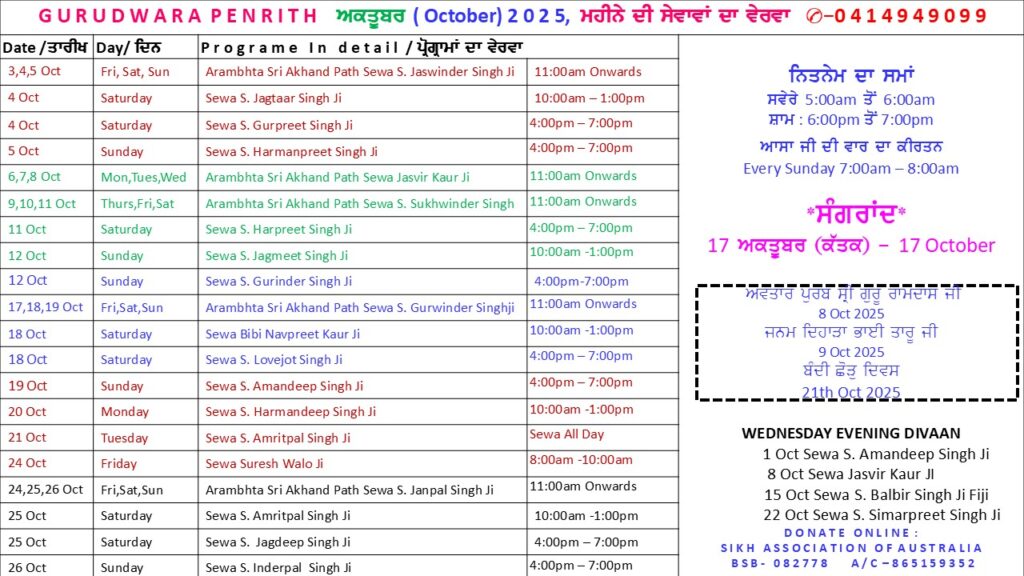 GURUDWARA PENRITH ਅਕਤੂਬਰ ( October) 2025, ਮਹੀਨੇ ਦੀ ਸੇਵਾਵਾਂ ਦਾ ਵੇਰਵਾ ✆–0414949099
Date /ਤਾਰੀਖ Day/ ਦਿਨ Programe In detail / ਪ੍ਰੋਗ੍ਰਾਮਾਂ ਦਾ ਵੇਰਵਾ
3,4,5 Oct Fri, Sat, Sun Arambhta Sri Akhand Path Sewa S. Jaswinder Singh Ji 11:00am Onwards
4 Oct Saturday Sewa S. Jagtaar Singh Ji 10:00am – 1:00pm
4 Oct Saturday Sewa S. Gurpreet Singh Ji 4:00pm – 7:00pm
5 Oct Sunday Sewa S. Harmanpreet Singh Ji 4:00pm – 7:00pm
6,7,8 Oct Mon,Tues,Wed Arambhta Sri Akhand Path Sewa Jasvir Kaur Ji 11:00am Onwards
9,10,11 Oct Thurs,Fri,Sat Arambhta Sri Akhand Path Sewa S. Sukhwinder Singh 11:00am Onwards
11 Oct Saturday Sewa S. Harpreet Singh Ji 4:00pm – 7:00pm
12 Oct Sunday Sewa S. Jagmeet Singh Ji 10:00am -1:00pm
12 Oct Sunday Sewa S. Gurinder Singh Ji 4:00pm-7:00pm
17,18,19 Oct Fri,Sat,Sun Arambhta Sri Akhand Path Sewa S. Gurwinder Singhji 11:00am Onwards
18 Oct Saturday Sewa Bibi Navpreet Kaur Ji 10:00am -1:00pm
18 Oct Saturday Sewa S. Lovejot Singh Ji 4:00pm – 7:00pm
19 Oct Sunday Sewa S. Amandeep Singh Ji 4:00pm – 7:00pm
20 Oct Monday Sewa S. Harmandeep Singh Ji 10:00am -1:00pm
21 Oct Tuesday Sewa S. Amritpal Singh Ji Sewa All Day
24 Oct Friday Sewa Suresh Walo Ji 8:00am -10:00am
24,25,26 Oct Fri,Sat,Sun Arambhta Sri Akhand Path Sewa S. Janpal Singh Ji 11:00am Onwards
25 Oct Saturday Sewa S. Amritpal Singh Ji 10:00am -1:00pm
25 Oct Saturday Sewa S. Jagdeep Singh Ji 4:00pm – 7:00pm
26 Oct Sunday Sewa S. Inderpal Singh Ji 4:00pm – 7:00pm
ਨਿਤਨੇਮ ਦਾ ਸਮਾਂ
ਸਵੇਰੇ 5:00am ਤੋਂ 6:00am
ਸ਼ਾਮ : 6:00pm ਤੋਂ 7:00pm
ਆਸਾ ਜੀ ਦੀ ਵਾਰ ਦਾ ਕੀਰਤਨ
Every Sunday 7:00am – 8:00am
*ਸੰਗਰਾਂਦ*
17 ਅਕਤੂਬਰ (ਕੱਤਕ) – 17 October
ਅਵਤਾਰ ਪੁਰਬ ਸ੍ਰੀ ਗੁਰੂ ਰਾਮਦਾਸ ਜੀ
8 Oct 2025
ਜਨਮ ਦਿਹਾੜਾ ਭਾਈ ਤਾਰੂ ਜੀ
9 Oct 2025
ਬੰਦੀ ਛੋੜੁ ਦਿਵਸ
21th Oct 2025
WEDNESDAY EVENING DIVAAN
1 Oct Sewa S. Amandeep Singh Ji
8 Oct Sewa Jasvir Kaur JI
15 Oct Sewa S. Balbir Singh Ji Fiji
22 Oct Sewa S. Simarpreet Singh Ji
DONATE ONLINE :
SIKH ASSOCIATION OF AUSTRALIA
BSB- 082778 A/C–865159352